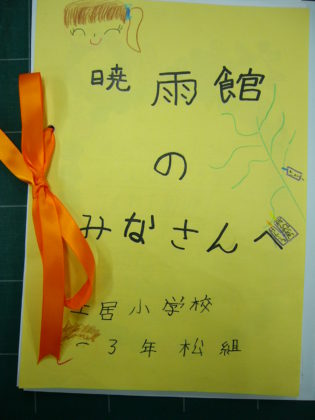 暁雨館
の
みなさんへ
土居小学校
3年松組